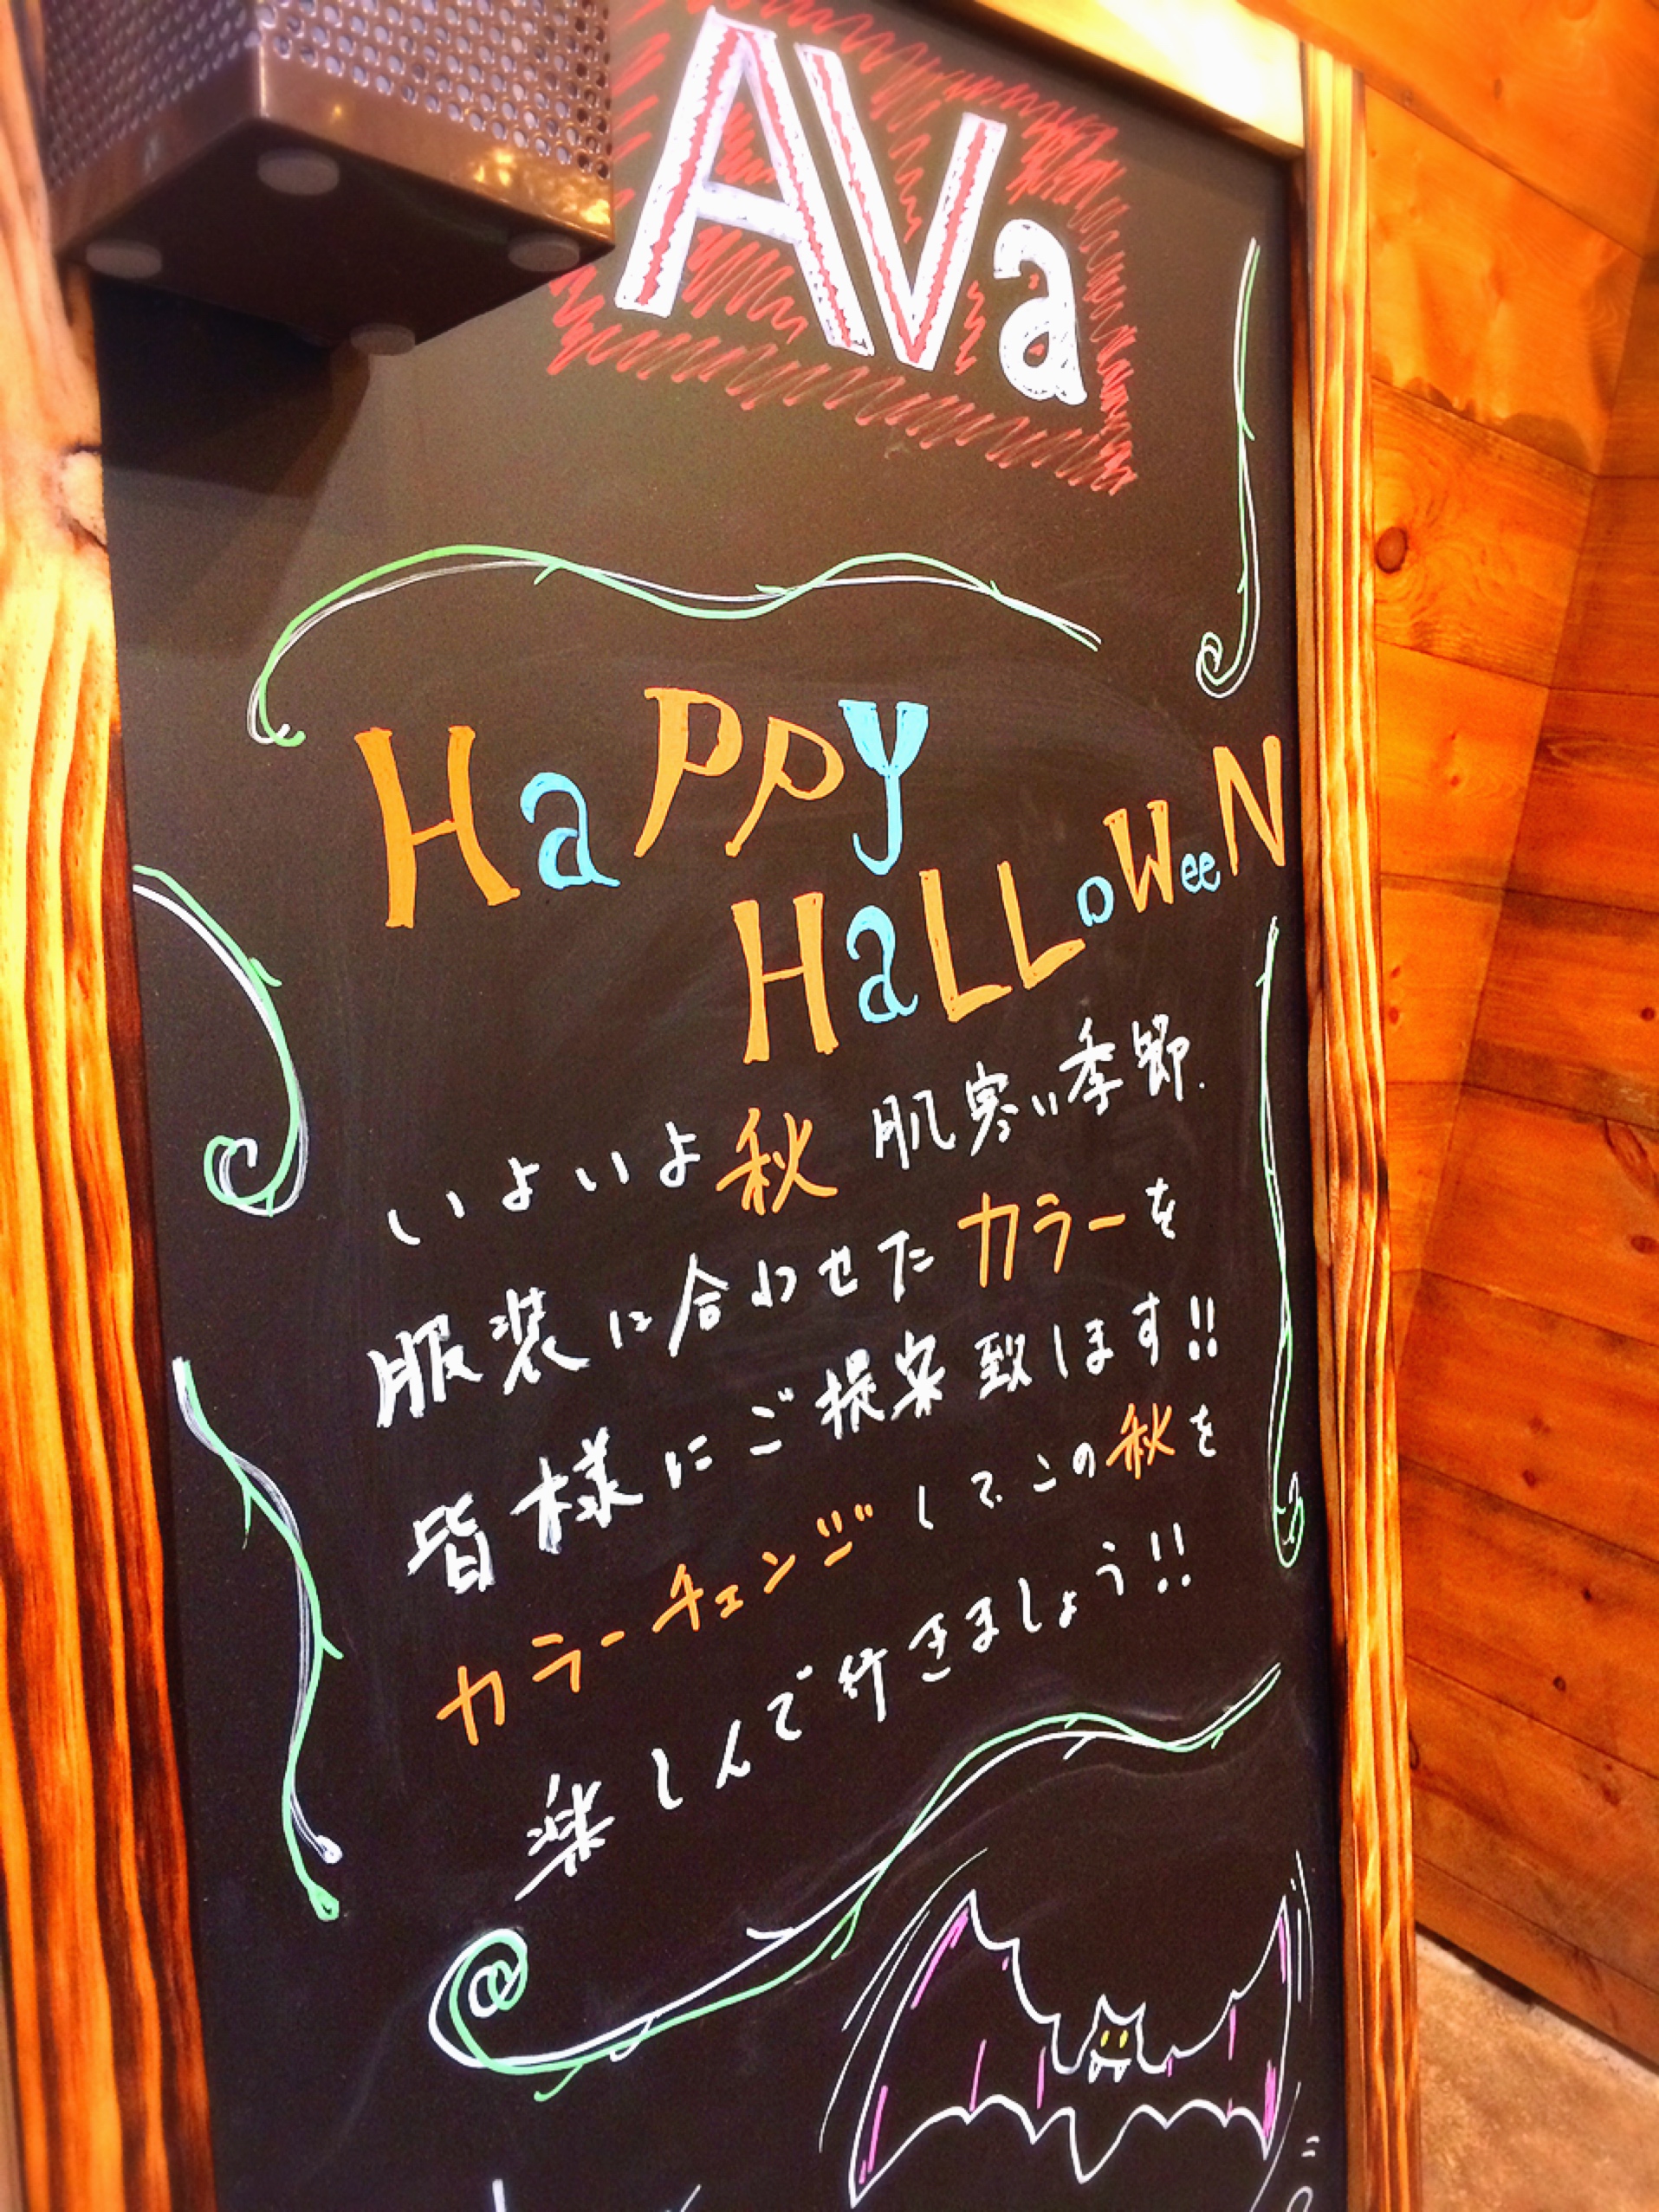 AVa
HaPPy
HaLLoWeeN
いよいよ秋 肌寒い季節.
服装に合わせたカラーを
皆様にご提案致します!!
カラーチェンジしてこの秋を
楽しんで行きましょう!!